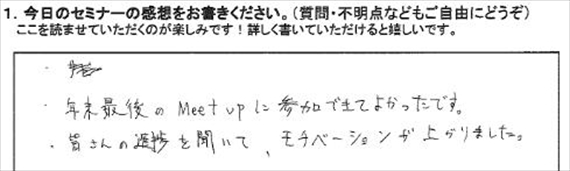 1. 今日のセミナーの感想をお書きください。(質問・不明点などもご自由にどうぞ)
ここを読ませていただくのが楽しみです！詳しく書いていただけると嬉しいです。
・年末最後の Meet upに参加できてよかったです。
・皆さんの進捗を聞いて、モチベーションが上がりました。